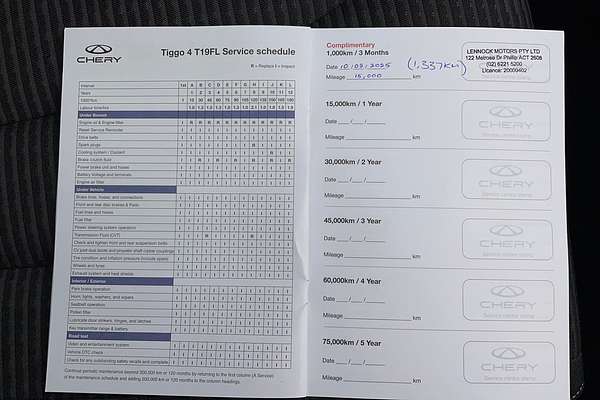 CHERY
Tiggo 4 T19FL Service schedule
R = Replace I = Inspect
Interval 1st A B C D E F G H I J K L
Years 1 2 3 4 5 6 7 8 9 10 11 12
1000*Km 1 15 30 45 60 75 90 105 120 135 150 165 180
Labour time/hrs
Under Bonnet
Engine oil & Engine filter I R R R R R R R R R R R R
Reset Service Reminder
Drive belts
Spark plugs
Cooling system / Coolant
Brake clutch fluid
Power brake unit and hoses
Battery Voltage and terminals
Engine air filter
Under Vehicle
Brake lines, hoses, and connections
Front and rear disc brakes & Pads
Fuel lines and hoses
Fuel filter
Power steering system operation
Transmission Fluid (CVT)
Check and tighten front and rear suspension bolts
CV joint dust boots and propeller shaft centre couplings
Tire condition and inflation pressure (include spare)
Wheels and tyres
Exhaust system and heat shields
Interior / Exterior
Park brake operation
Horn, lights, washers, and wipers
Seatbelt operation
Pollen filter
Lubricate door strikers, hinges, and latches
Key transmitter range & battery
Road test
Video and entertainment system
Vehicle DTC check
Check for any outstanding safety recalls and complete
Continue periodic maintenance beyond 200,000 km or 120 months by returning to the first column (A Service)
of the maintenance schedule and adding 200,000 km or 120 months to the column headings.
Complimentary
1,000km / 3 Months
Date 10/02/2025 (1,337KM)
Mileage 15,000 km
LENNOCK MOTORS PTY LTD
122 Melrose Dr Phillip ACT 2606
(02) 6221 5200
Licence: 20009402
15,000km / 1 Year
Date ___/___/___
Mileage km
CHERY
Service centre stamp
30,000km / 2 Year
Date ___/___/___
Mileage km
CHERY
Service centre stamp
45,000km / 3 Year
Date ___/___/___
Mileage km
CHERY
Service centre stamp
60,000km / 4 Year
Date ___/___/___
Mileage km
CHERY
Service centre stamp
75,000km / 5 Year
Date ___/___/___
Mileage km
CHERY
Service centre stamp